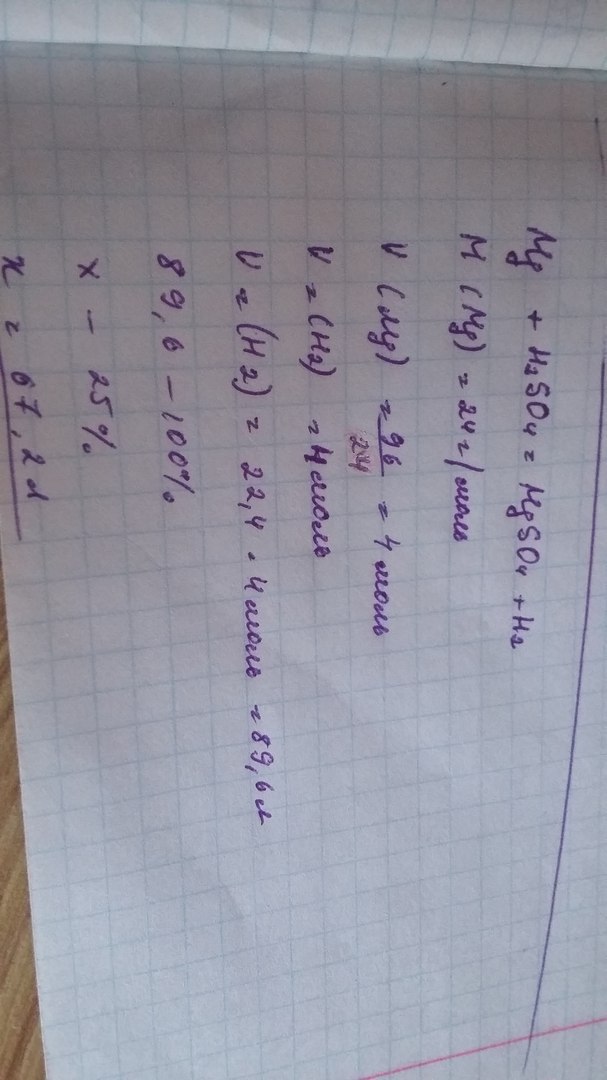 Mg + H2SO4 = MgSO4 + H2
M (Mg) = 24 г/моль
V (Mg) = 96/24 = 4 моль
V = (H2) = 4 моль
V = (H2) = 22,4 · 4 моль = 89,6 л
89,6 – 100%
x – 25%
x = 67,2 л